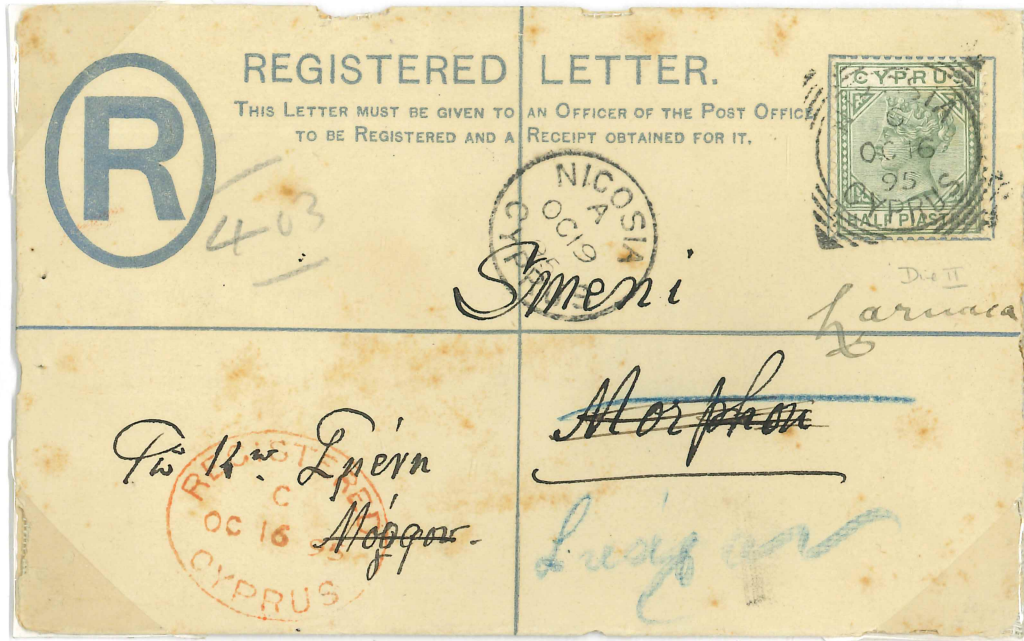 R
REGISTERED LETTER.
THIS LETTER MUST BE GIVEN TO AN OFFICER OF THE POST OFFICE
TO BE REGISTERED AND A RECEIPT OBTAINED FOR IT.
CYPRUS
OC 16
95
CYPRUS
HALF PIAST
403
NICOSIA
A
OC 19
CYPRUS
Smeni
Die II
Larnaca
Morphou
Τῷ Κῳ Σμένη
Μόρφου.
REGISTERED
C
OC 16 95
CYPRUS